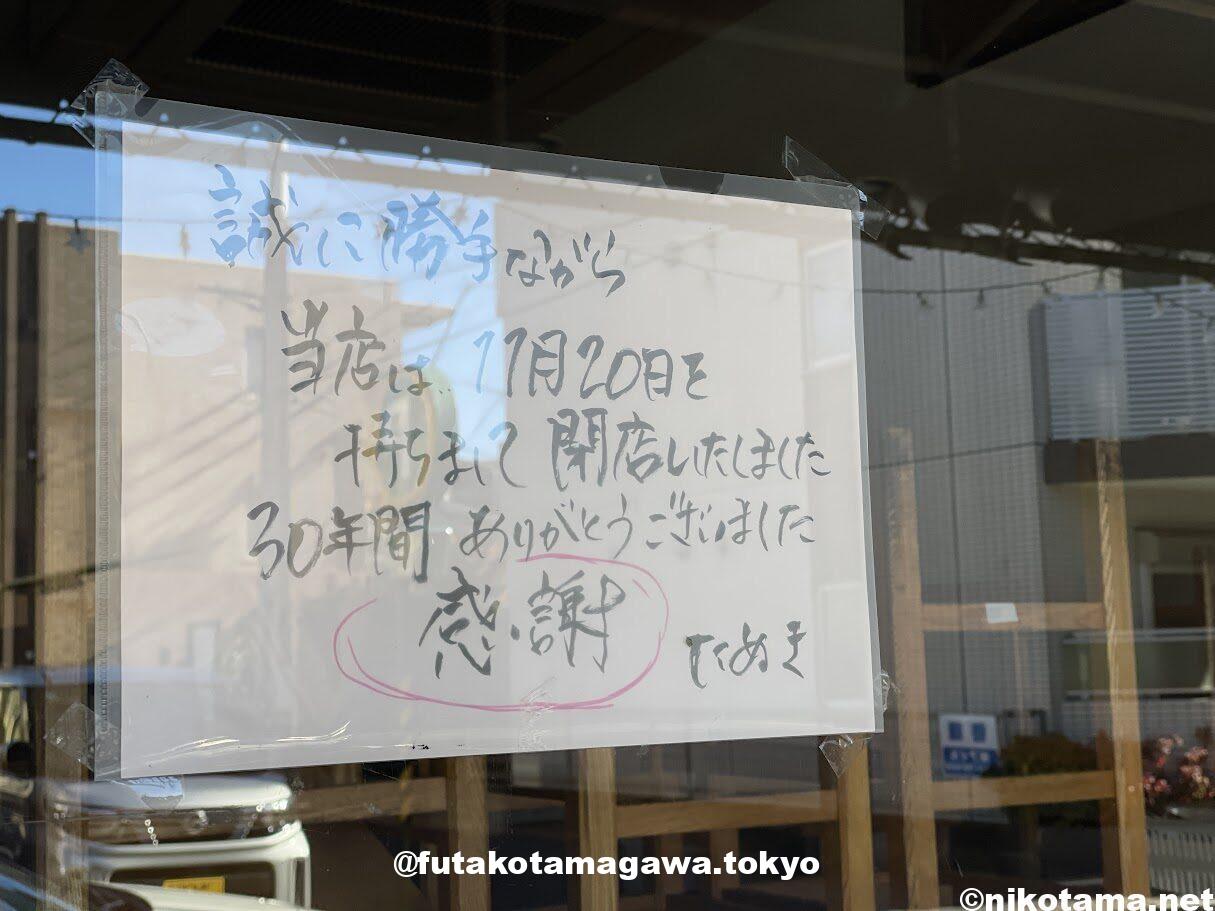 誠に勝手ながら
当店は 11月20日を
持ちまして 閉店いたしました
30年間 ありがとうございました
感謝 たぬき
@futakotamagawa.tokyo
©nikotama.net